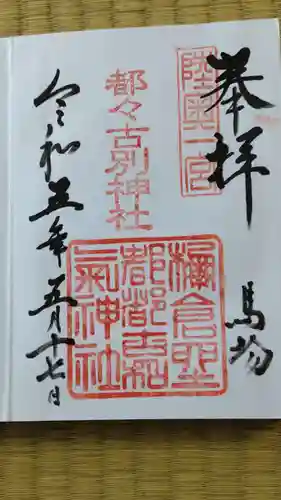 奉拝
陸奥一宮
馬場
都々古別神社
棚倉野
都都古和
氣神社
令和五年五月十七日